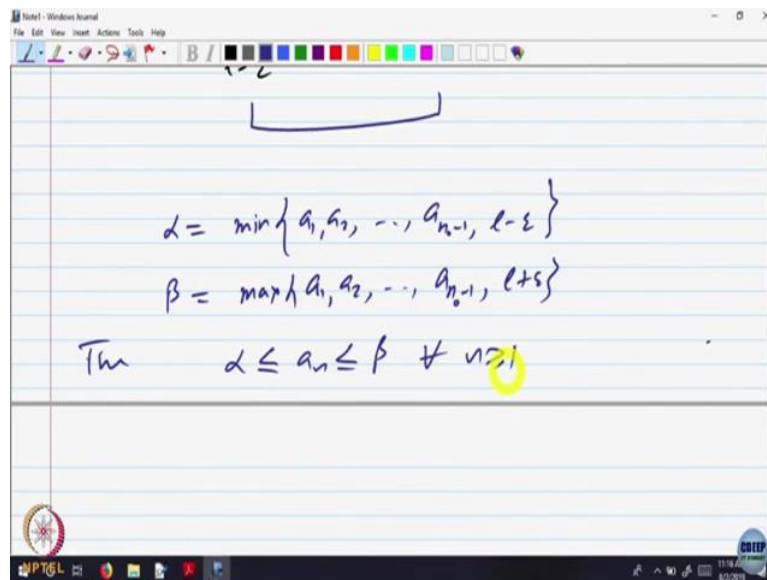 Note1 - Windows Journal
File Edit View Insert Actions Tools Help
B I
α = min{ a₁, a₂, ..., aₙ₀₋₁, l-ε }
β = max{ a₁, a₂, ..., aₙ₀₋₁, l+ε }
α ≤ aₙ ≤ β ∀ n ≥ 1
NPTEL
CDEEP
8/2/2019